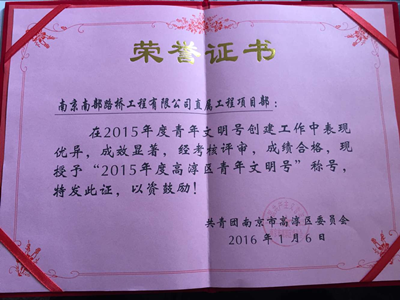 荣誉证书
南京南部路桥工程有限公司直属工程项目部：
在2015年度青年文明号创建工作中表现
优异，成效显著，经考核评审，成绩合格，现
授予“2015年度高淳区青年文明号”称号，
特发此证，以资鼓励！
共青团南京市高淳区委员会
2016年1月6日